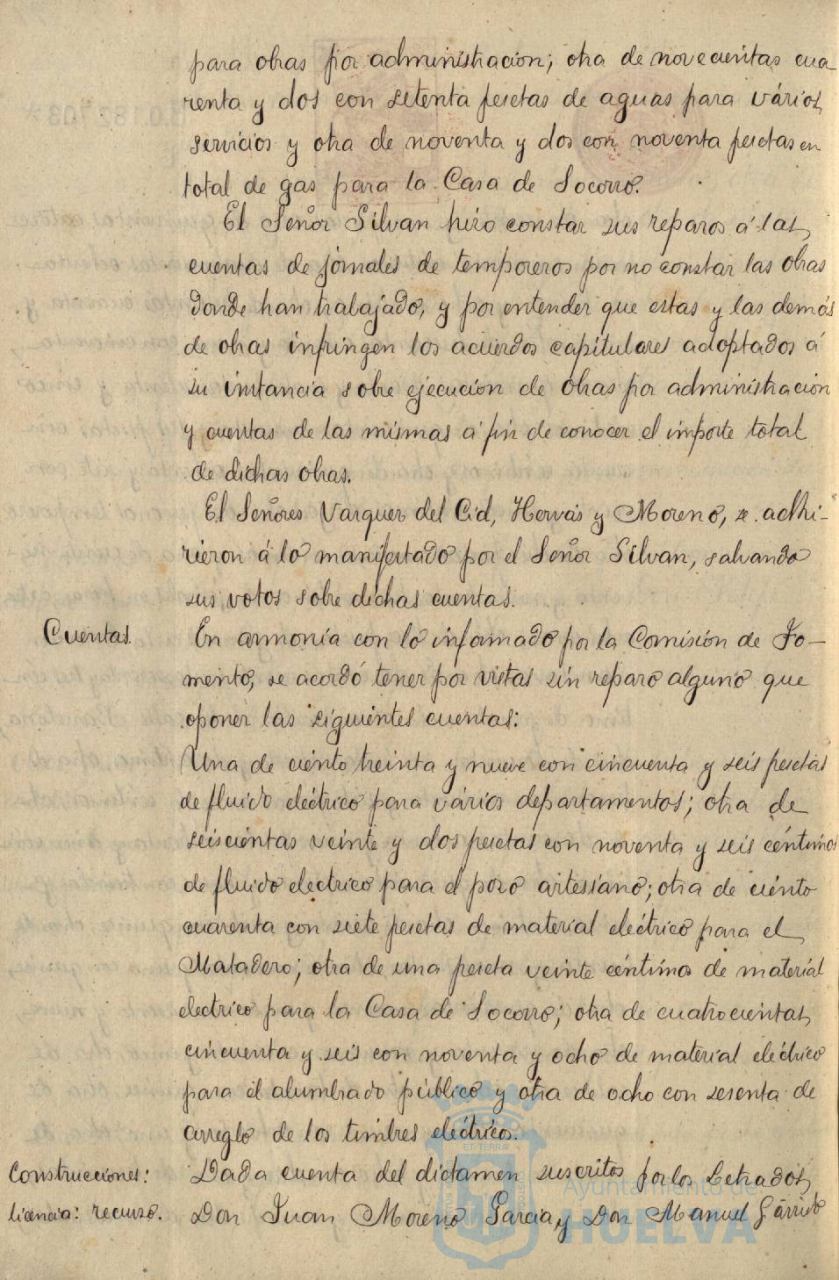 para obras por administración; otra de novecientas cua
renta y dos con setenta pesetas de aguas para vários
servicios y otra de noventa y dos con noventa pesetas en
total de gas para la Casa de Socorro.
El Señor Silvan hizo constar sus reparos á las
cuentas de jornales de temporeros por no constar las obras
donde han trabajado, y por entender que estas y las demás
de obras infringen los acuerdos capitulares adoptados á
su instancia sobre ejecución de obras por administración
y cuentas de las mismas á fin de conocer el importe total
de dichas obras.
El Señores Vazquez del Cid, Hervás y Moreno, se adhi-
rieron á lo manifestado por el Señor Silvan, salvando
sus votos sobre dichas cuentas.
Cuentas. En armonía con lo informado por la Comisión de Fo-
mento, se acordó tener por vistas sin reparo alguno que
oponer las siguientes cuentas:
Una de ciento treinta y nueve con cincuenta y seis pesetas
de fluido eléctrico para vários departamentos; otra de
seiscientas veinte y dos pesetas con noventa y seis céntimos
de fluido electrico para el pozo artesiano; otra de ciento
cuarenta con siete pesetas de material eléctrico para el
Matadero; otra de una peseta veinte céntimos de material
electrico para la Casa de Socorro; otra de cuatrocientas
cincuenta y seis con noventa y ocho de material eléctrico
para el alumbrado público y otra de ocho con sesenta de
arreglo de los timbres eléctricos.
Construcciones: Dada cuenta del dictamen suscritos por los Letrados,
licencia: recurso. Don Juan Moreno Garcia, y Don Manuel Garrido
Ayuntamiento de
HUELVA